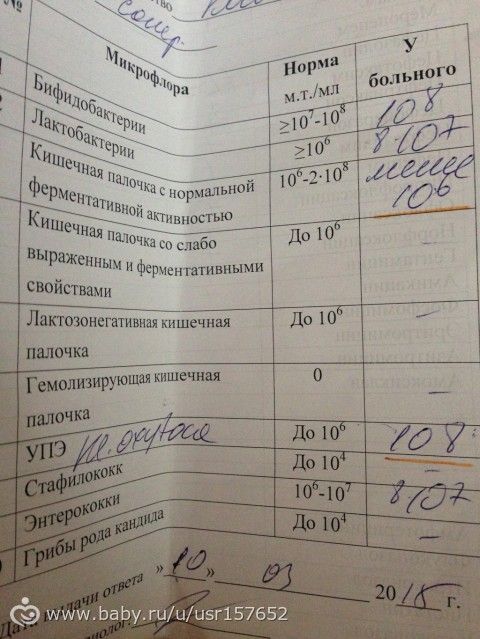 №
Микрофлора
Норма
м.т./мл
У
больного
1
Бифидобактерии
≥10⁷-10⁸
10⁸
2
Лактобактерии
≥10⁶
8·10⁷
Кишечная палочка с нормальной
ферментативной активностью
10⁶-2·10⁸
менее
10⁶
Кишечная палочка со слабо
выраженным и ферментативными
свойствами
До 10⁶
–
Лактозонегативная кишечная
палочка
До 10⁶
–
Гемолизирующая кишечная
палочка
0
–
УПЭ Kl. oxytoca
До 10⁶
10⁸
Стафилококк
До 10⁴
–
Энтерококки
10⁶-10⁷
8·10⁷
Грибы рода кандида
До 10⁴
–
Дата выдачи ответа »10» 03 2015 г.
www.baby.ru/u/usr157652